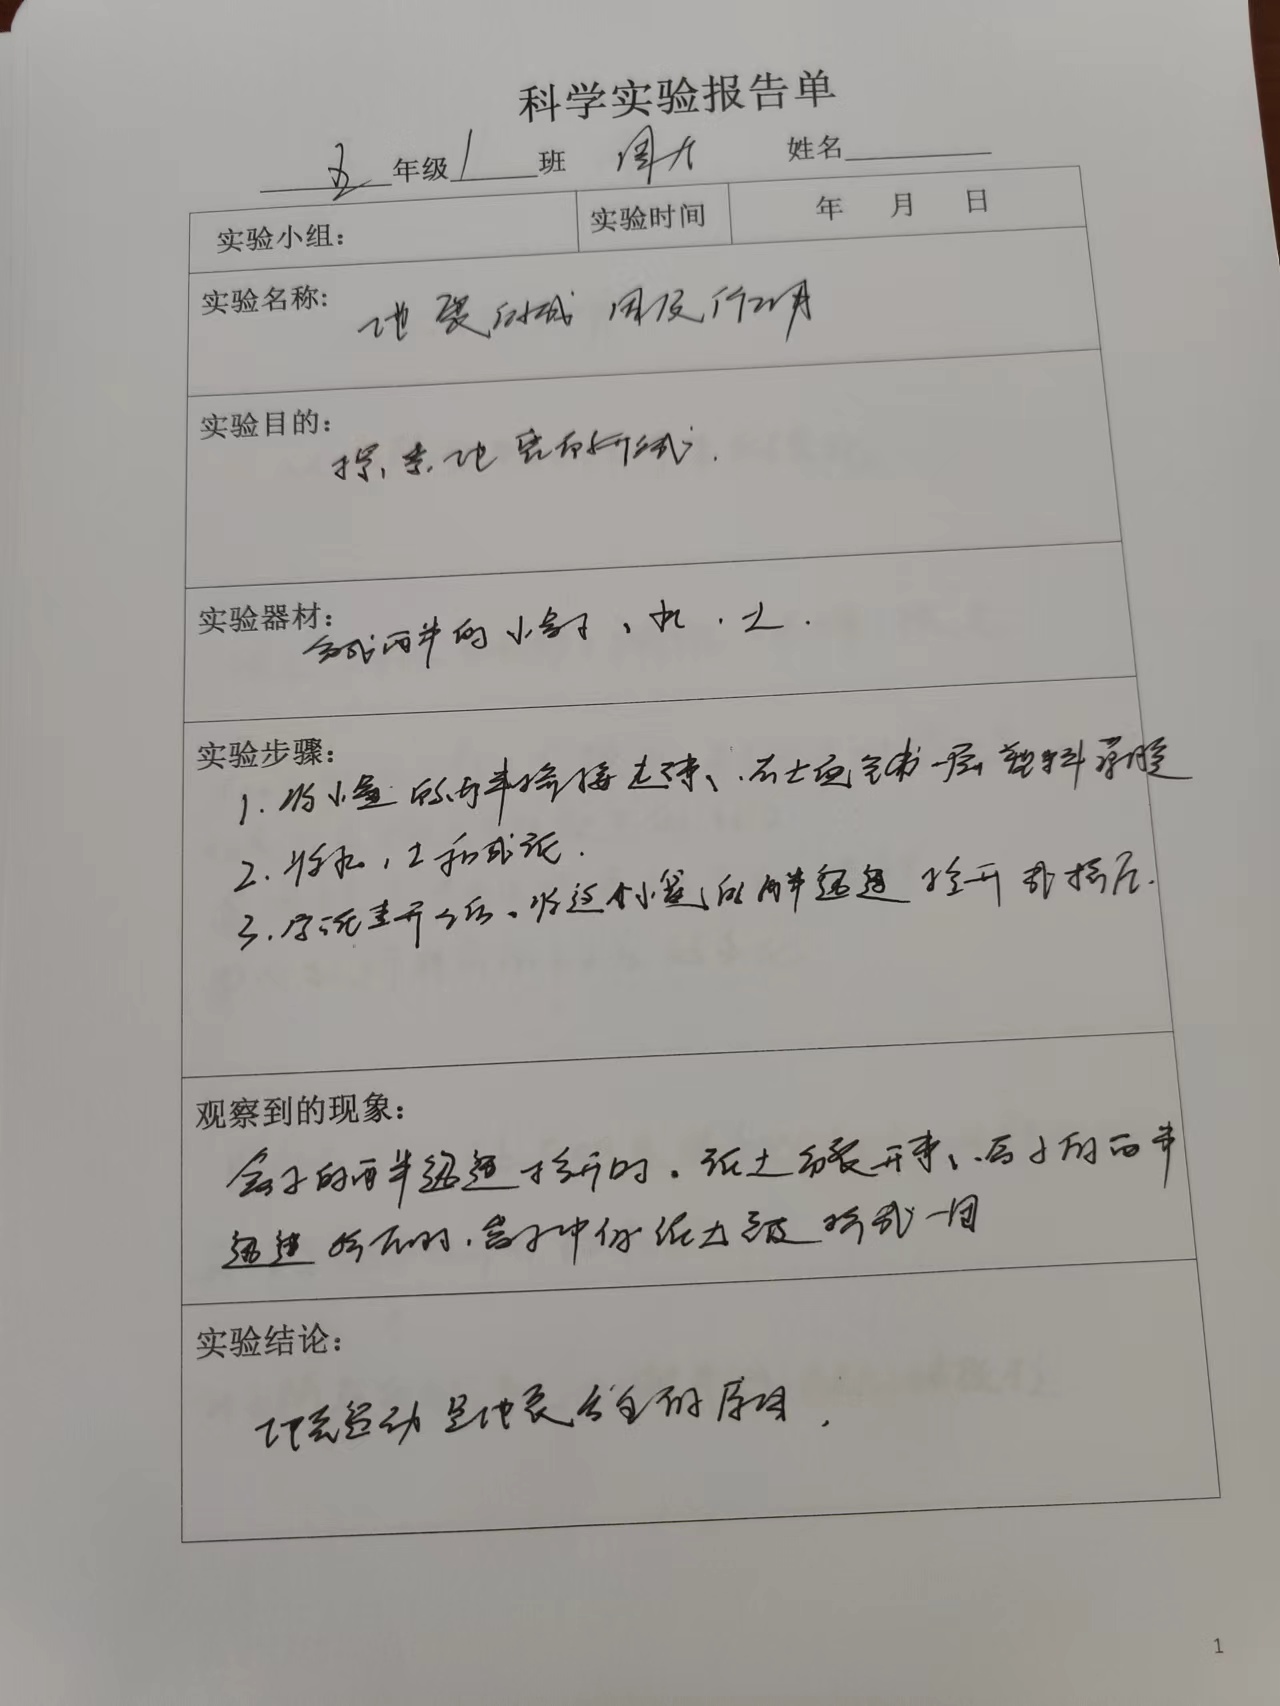 科学实验报告单
五年级1班 姓名
实验小组： 实验时间 年 月 日
实验名称:
地震的成因及作用
实验目的：
探索地震的形成.
实验器材：
分成两半的小盒子、水、土.
实验步骤：
1. 将小盒的两半拼接起来、一层塑料薄膜
2. 将水，土和成泥.
3. 将这个小盒的两半迅速拉开或挤压.
观察到的现象：
盒子的两半迅速拉开时。泥土分裂开来、盒子的两半
迅速挤压时，盒子中的泥土被挤成一团
实验结论：
地壳运动是地震发生的原因.
1